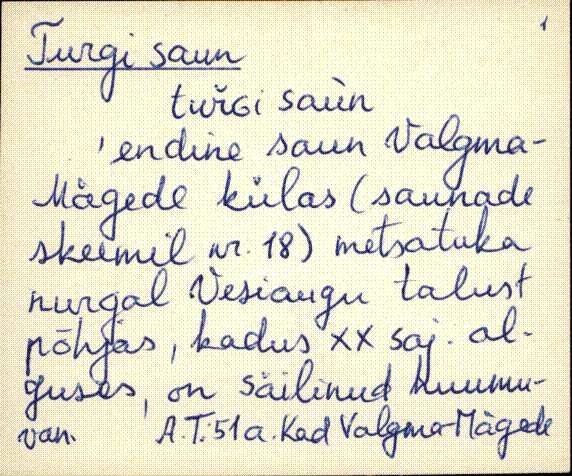 1
Turgi saun
tuřGi saùn
'endine saun Valgma-
Mägede külas (saunade
skeemil nr. 18) metsatuka
nurgal Vesiaugu talust
põhjas, kadus XX saj. al-
guses, on säilinud kuumu-
van. A.T. 51 a. Kad Valgma-Mägede